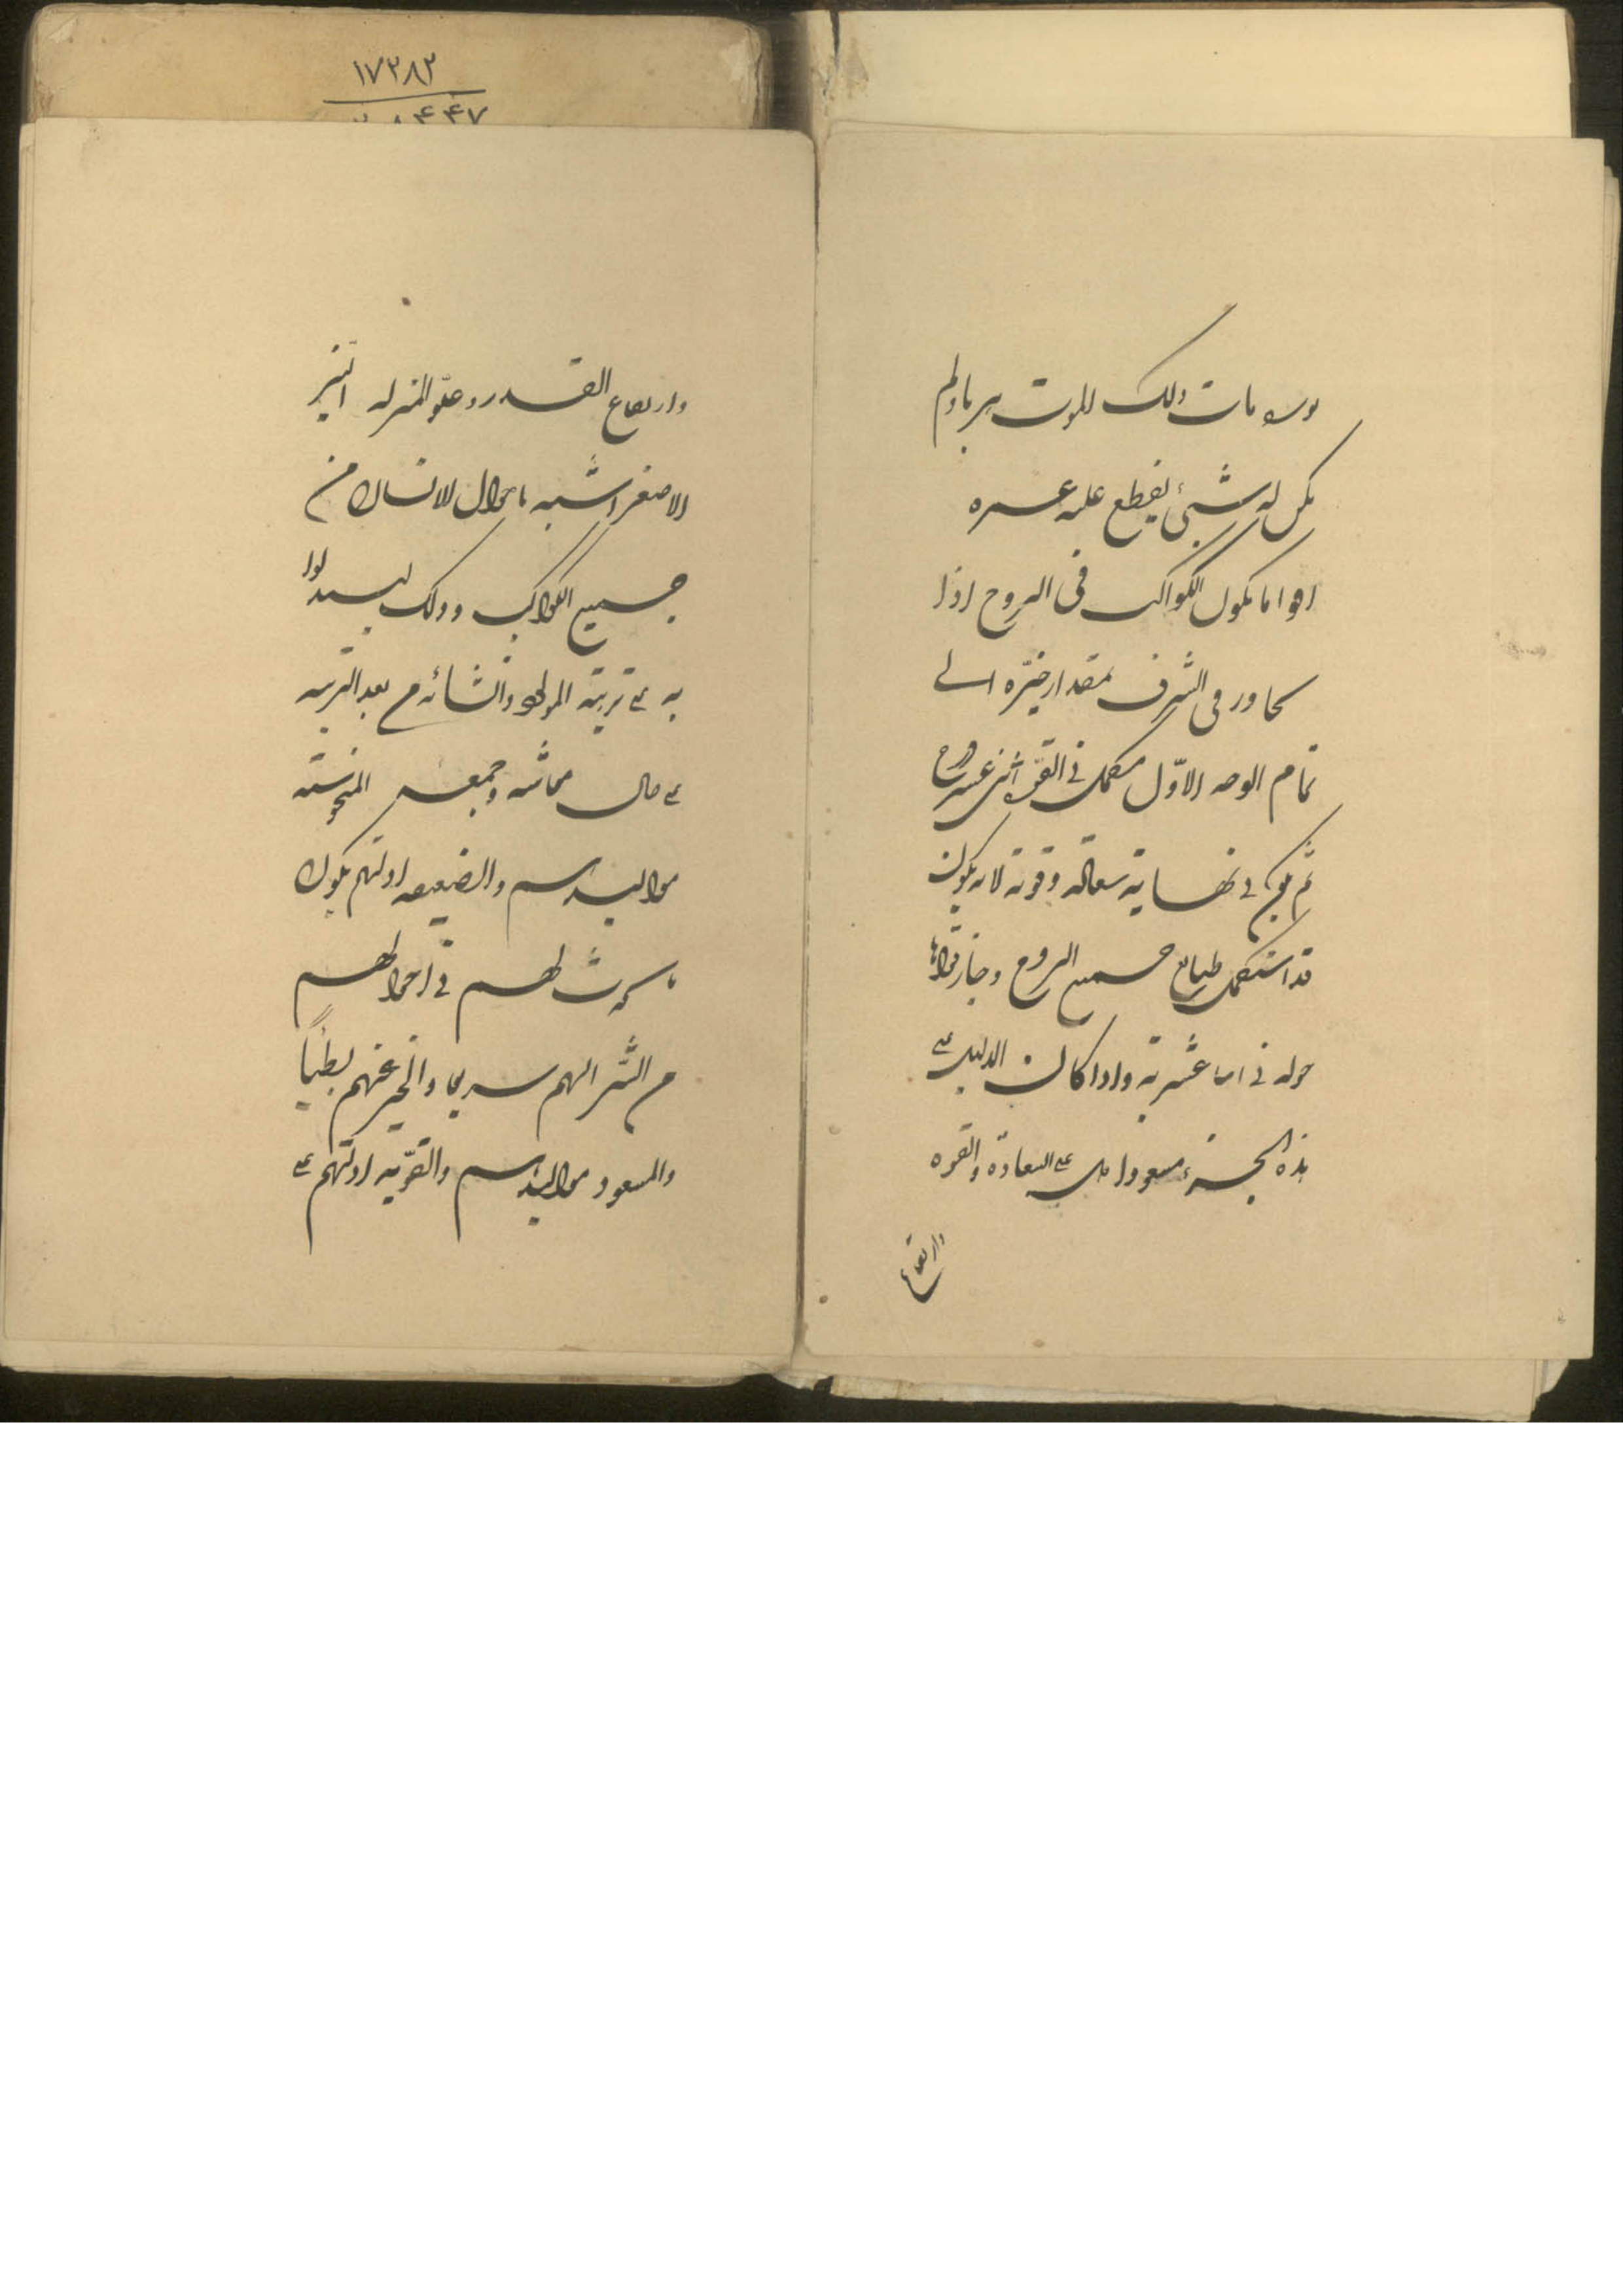 مات ذلك المولود سريعا ولم
يكن له شيئ يقطع عليه عمره
اقوا ما يكون الكواكب في البروج اذا
تجاوز في الشرف بمقدار حيّزه الى
تمام الوجه الاوّل فيتكمل في القوّة اثنى عشر بروج
ثم يكون في نهاية سعادته وقوته لانه يكون
قد استكمل طبايع جميع البروج وحاز قواها
حوله في اثنا عشريته واذا كان الدليل على
هذه الجهة مسعودا دل على السعادة والقوة
وارتفاع
وارتفاع القدر وعلوّ المنزلة النيّر
الاصغر اشبه باحوال الانسان من
جميع الكواكب وذلك ليستدلوا
به على تربية المولود وانشائه من بعد التربية
على حال معاشه وجميعه المنحوسة
مواليدهم والضعيفه ادلتهم يكون
في احوالهم
من الشّر اليهم سريعا والخير عنهم بطيئاً
والمسعود مواليدهم والقويّه ادلتهم على
۱۷۲۸۲